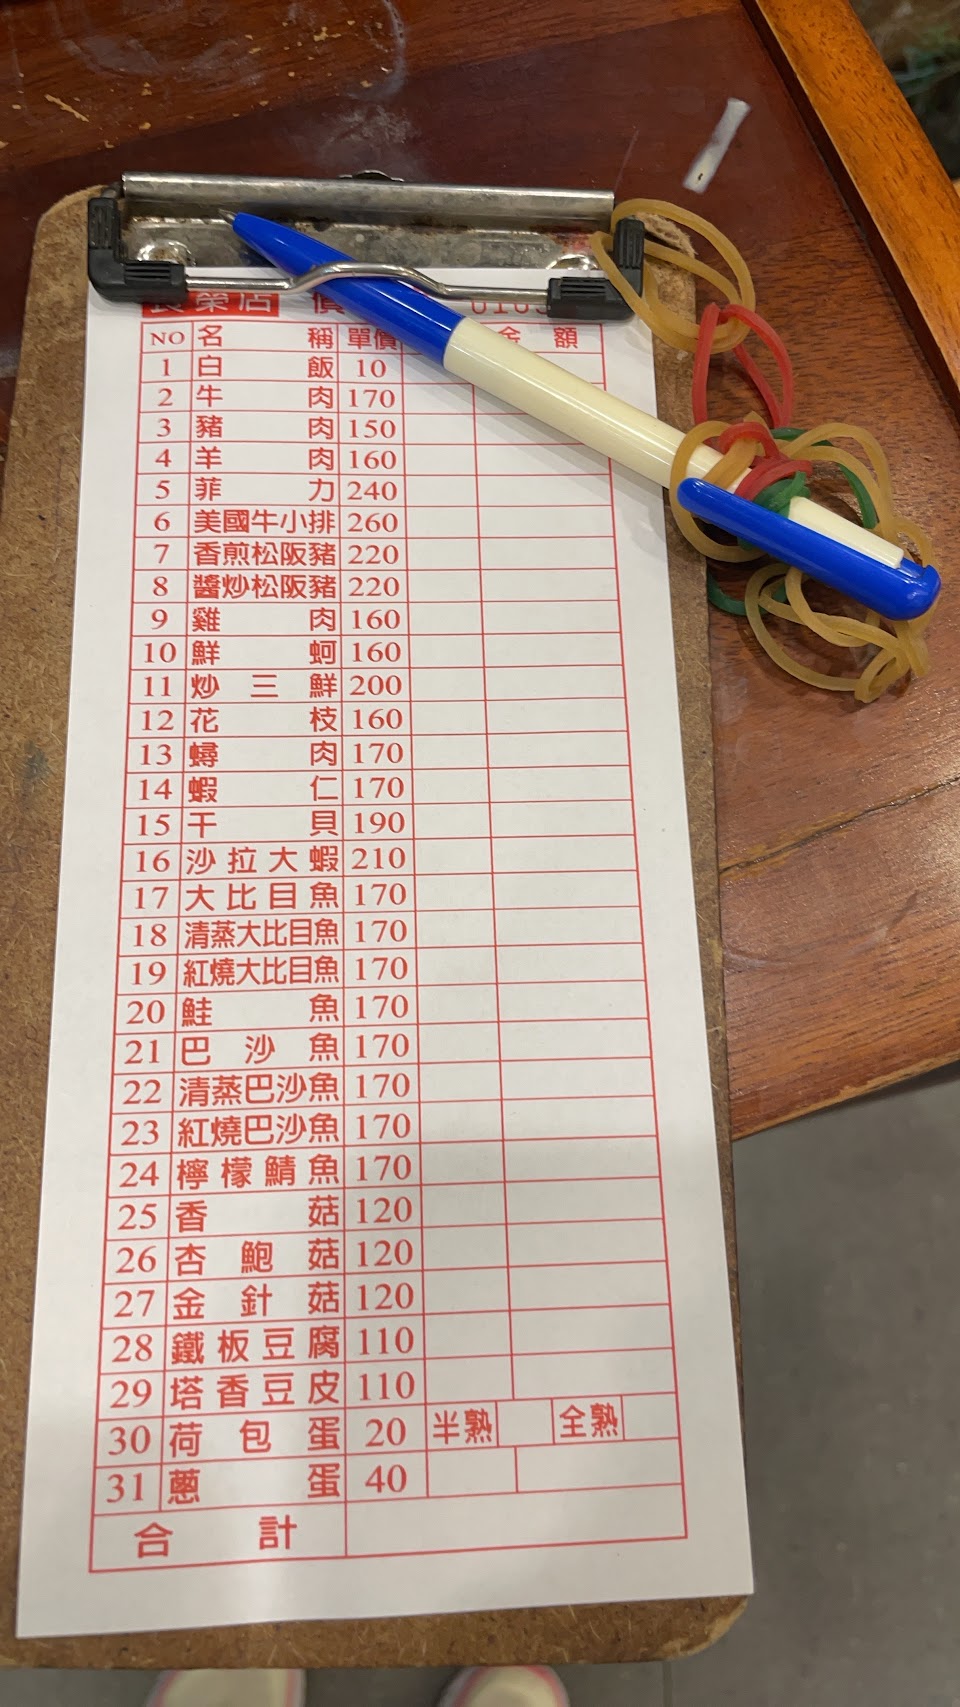 長榮店 價
NO 名稱 單價 金額
1 白飯 10
2 牛肉 170
3 豬肉 150
4 羊肉 160
5 菲力 240
6 美國牛小排 260
7 香煎松阪豬 220
8 醬炒松阪豬 220
9 雞肉 160
10 鮮蚵 160
11 炒三鮮 200
12 花枝 160
13 蟳肉 170
14 蝦仁 170
15 干貝 190
16 沙拉大蝦 210
17 大比目魚 170
18 清蒸大比目魚 170
19 紅燒大比目魚 170
20 鮭魚 170
21 巴沙魚 170
22 清蒸巴沙魚 170
23 紅燒巴沙魚 170
24 檸檬鯖魚 170
25 香菇 120
26 杏鮑菇 120
27 金針菇 120
28 鐵板豆腐 110
29 塔香豆皮 110
30 荷包蛋 20 半熟 全熟
31 蔥蛋 40
合計